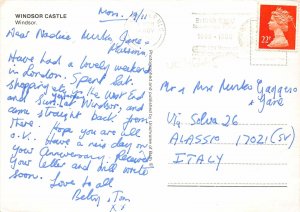 WINDSOR CASTLE
Windsor.
Mon. 19/11
Dear Nadine
Have had a lovely weekend
in London. Spent Sat.
shopping etc. in the West End
and Sun. at Windsor, and
came straight back from
there. Hope you are all
O.K. Have a nice day on
your Anniversary. Received
your letter and will write
soon.
Love to all
Betty, Tom
xx
Mr & Mrs
& Jane
Via Solva 26
ALASSIO 17021 (SV)
ITALY